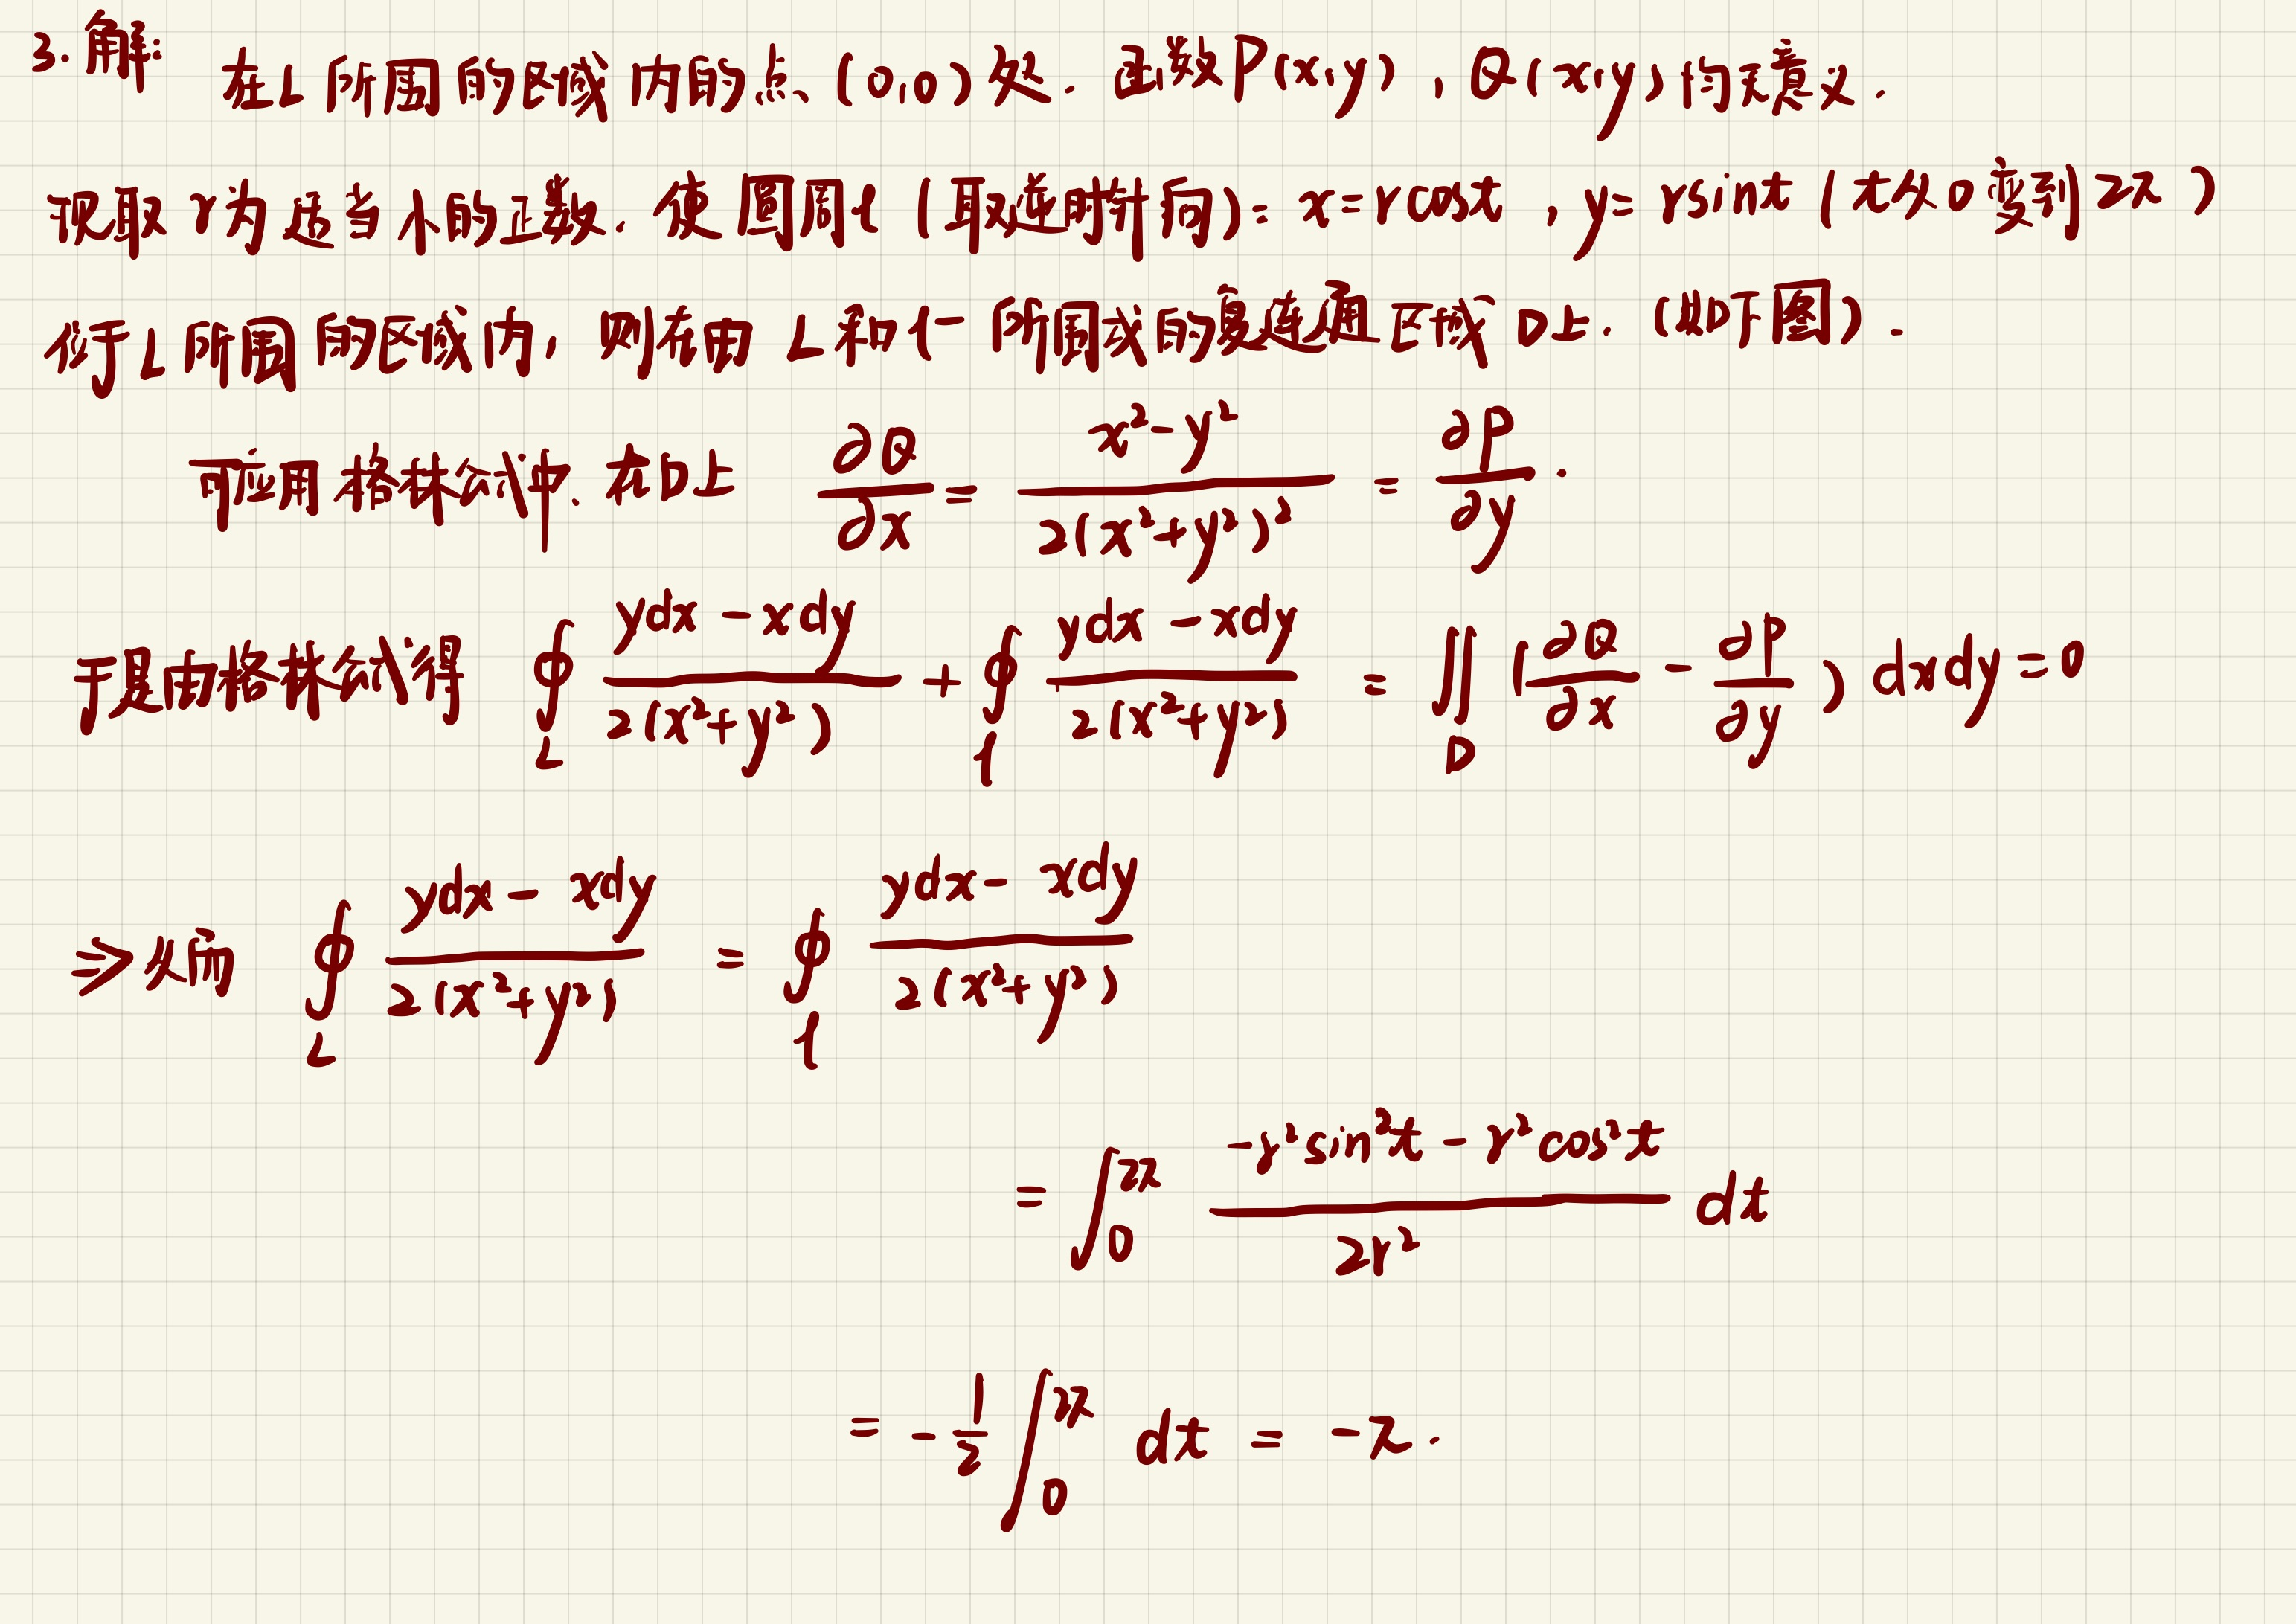 3. 解: 在L所围的区域内的点(0,0)处. 函数P(x,y), Q(x,y)均无意义.
现取r为适当小的正数. 使圆周l(取逆时针向): x=rcost, y=rsint (t从0变到2π)
位于L所围的区域内, 则在由L和l⁻所围成的复连通区域D上. (如下图).
可应用格林公式中. 在D上 ∂Q/∂x = (x²-y²)/(2(x²+y²)²) = ∂P/∂y.
于是由格林公式得 ∮_L (ydx-xdy)/(2(x²+y²)) + ∮_l (ydx-xdy)/(2(x²+y²)) = ∬_D (∂Q/∂x - ∂P/∂y) dxdy=0
⇒从而 ∮_L (ydx-xdy)/(2(x²+y²)) = ∮_l (ydx-xdy)/(2(x²+y²))
= ∫_0^{2π} (-r²sin²t - r²cos²t)/(2r²) dt
= -1/2 ∫_0^{2π} dt = -π.